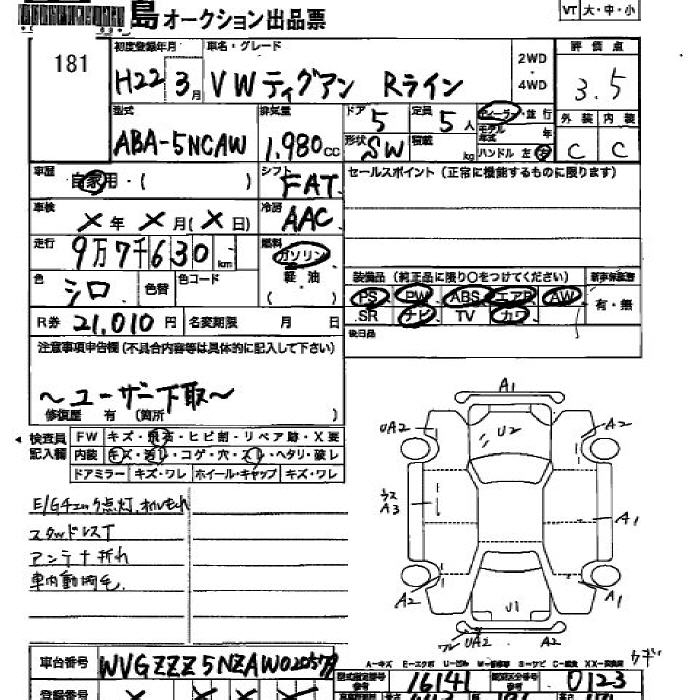 島 オークション出品票
VT 大・中・小
181
初度登録年月
車名・グレード
評価点
H22 3月 VW ティグアン Rライン
2WD
・
4WD
3.5
型式
排気量
ドア 5
定員 5人
ディーラー・並行
モデル年式 年
外装 内装
ABA-5NCAW 1,980cc
形状 SW
積載 kg
ハンドル 左 右
C C
車歴 自家用・( )
シフト FAT
セールスポイント(正常に機能するものに限ります)
車検 × 年 × 月(× 日)
冷房 AAC
走行 9万7千630km
燃料 ガソリン
軽油
( )
色 シロ
色替
色コード
装備品(純正品に限り○をつけてください)
PS PW ABS エアB AW
有・無
SR ナビ TV カワ
R券 21,010円
名変期限 月 日
後日品
注意事項申告欄(不具合内容等は具体的に記入して下さい)
~ユーザー下取~
修復歴 有 (箇所 )
検査員記入欄
FW キズ・飛石・ヒビ割・リペア跡・X要
内装 キズ・汚レ・コゲ・穴・スレ・ヘタリ・破レ
ドアミラー キズ・ワレ ホイール・キャップ キズ・ワレ
E/Gチェック点灯.オイルもれ
スタッドレスT
アンテナ折れ
車内動物毛
A1
UA2
U2
A2
A3
A1
A2
U1
A2
UA2
A2
A-キズ E-エクボ U-凹
車台番号 WVGZZZ5NZAW0
登録番号
16141
0123